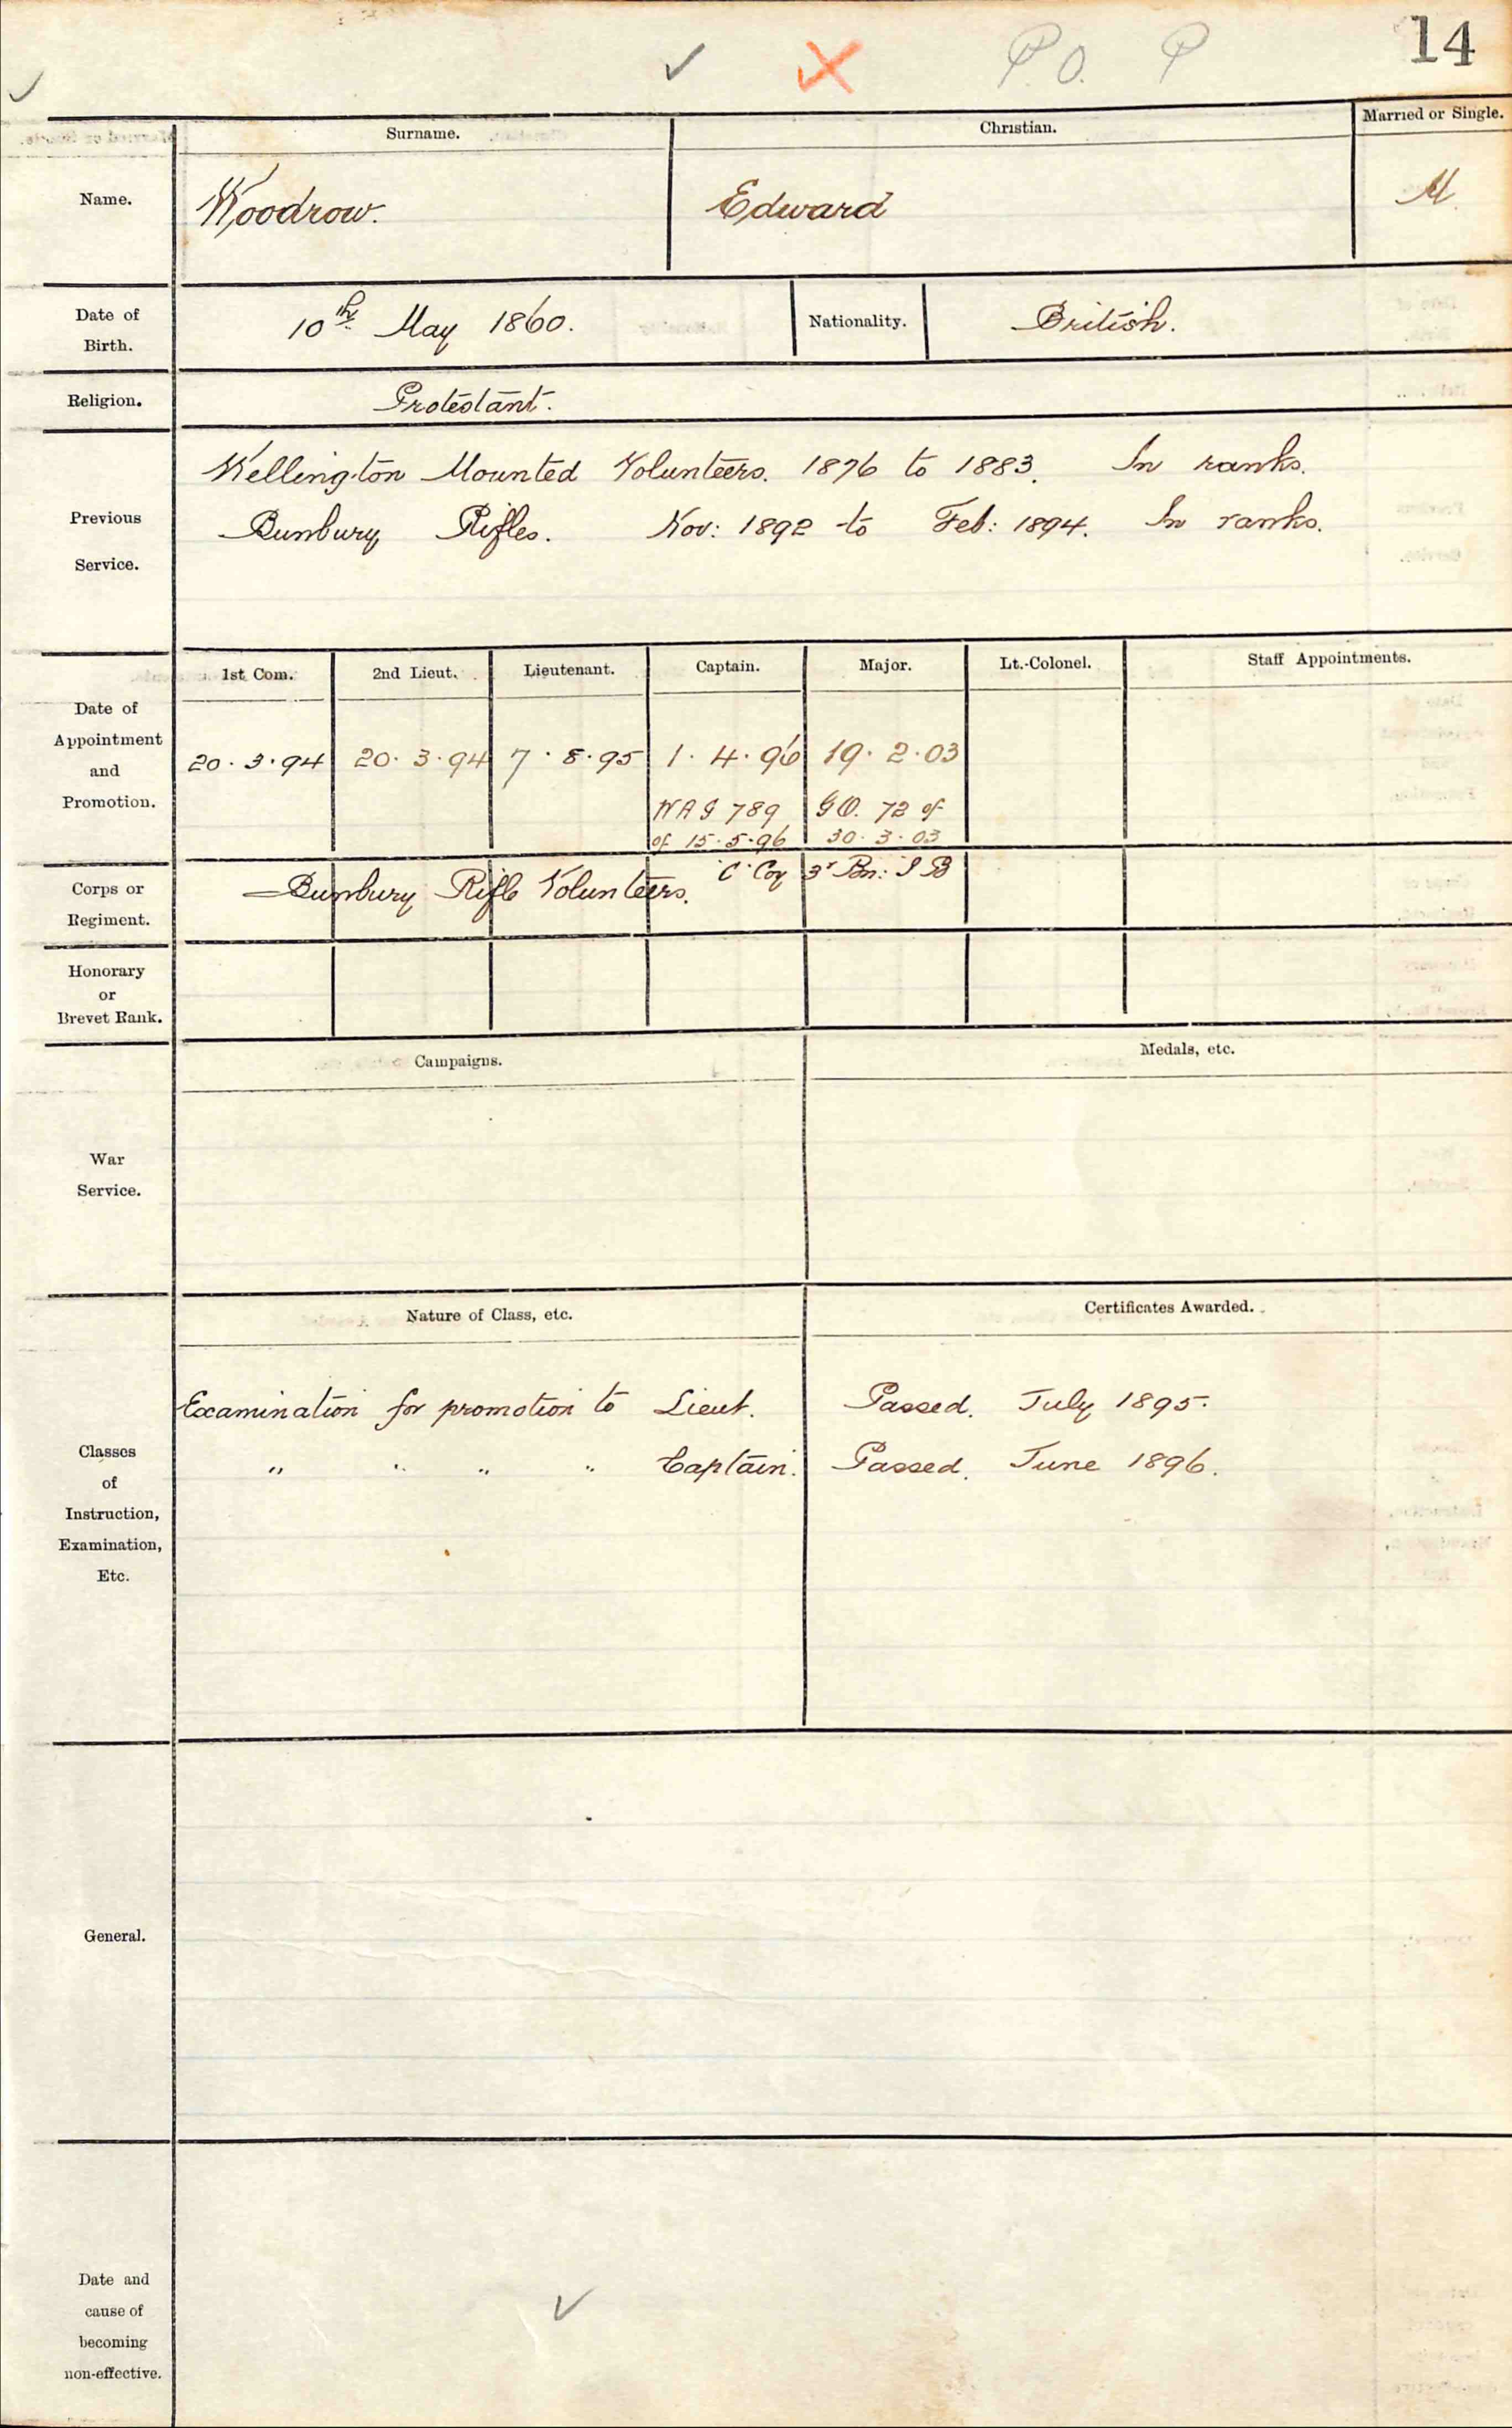 P.O. P 14
Surname. Christian. Married or Single.
Name. Woodrow. Edward M
Date of Birth. 10th May 1860. Nationality. British.
Religion. Protestant.
Wellington Mounted Volunteers. 1876 to 1883. In ranks.
Previous Service. Bunbury Rifles. Nov: 1892 to Feb: 1894. In ranks.
1st Com. 2nd Lieut. Lieutenant. Captain. Major. Lt.-Colonel. Staff Appointments.
Date of
Appointment
and
Promotion.
20.3.94 20.3.94 7.8.95 1.4.96 19.2.03
WAG 789 GO. 72 of
of 15.5.96 30.3.03
Corps or
Regiment.
Bunbury Rifle Volunteers. "C" Coy 3r Bn:
Honorary
or
Brevet Rank.
Campaigns. Medals, etc.
War
Service.
Nature of Class, etc. Certificates Awarded.
Examination for promotion to Lieut. Passed. July 1895.
" " " " Captain. Passed. June 1896.
Classes
of
Instruction,
Examination,
Etc.
General.
Date and
cause of
becoming
non-effective.